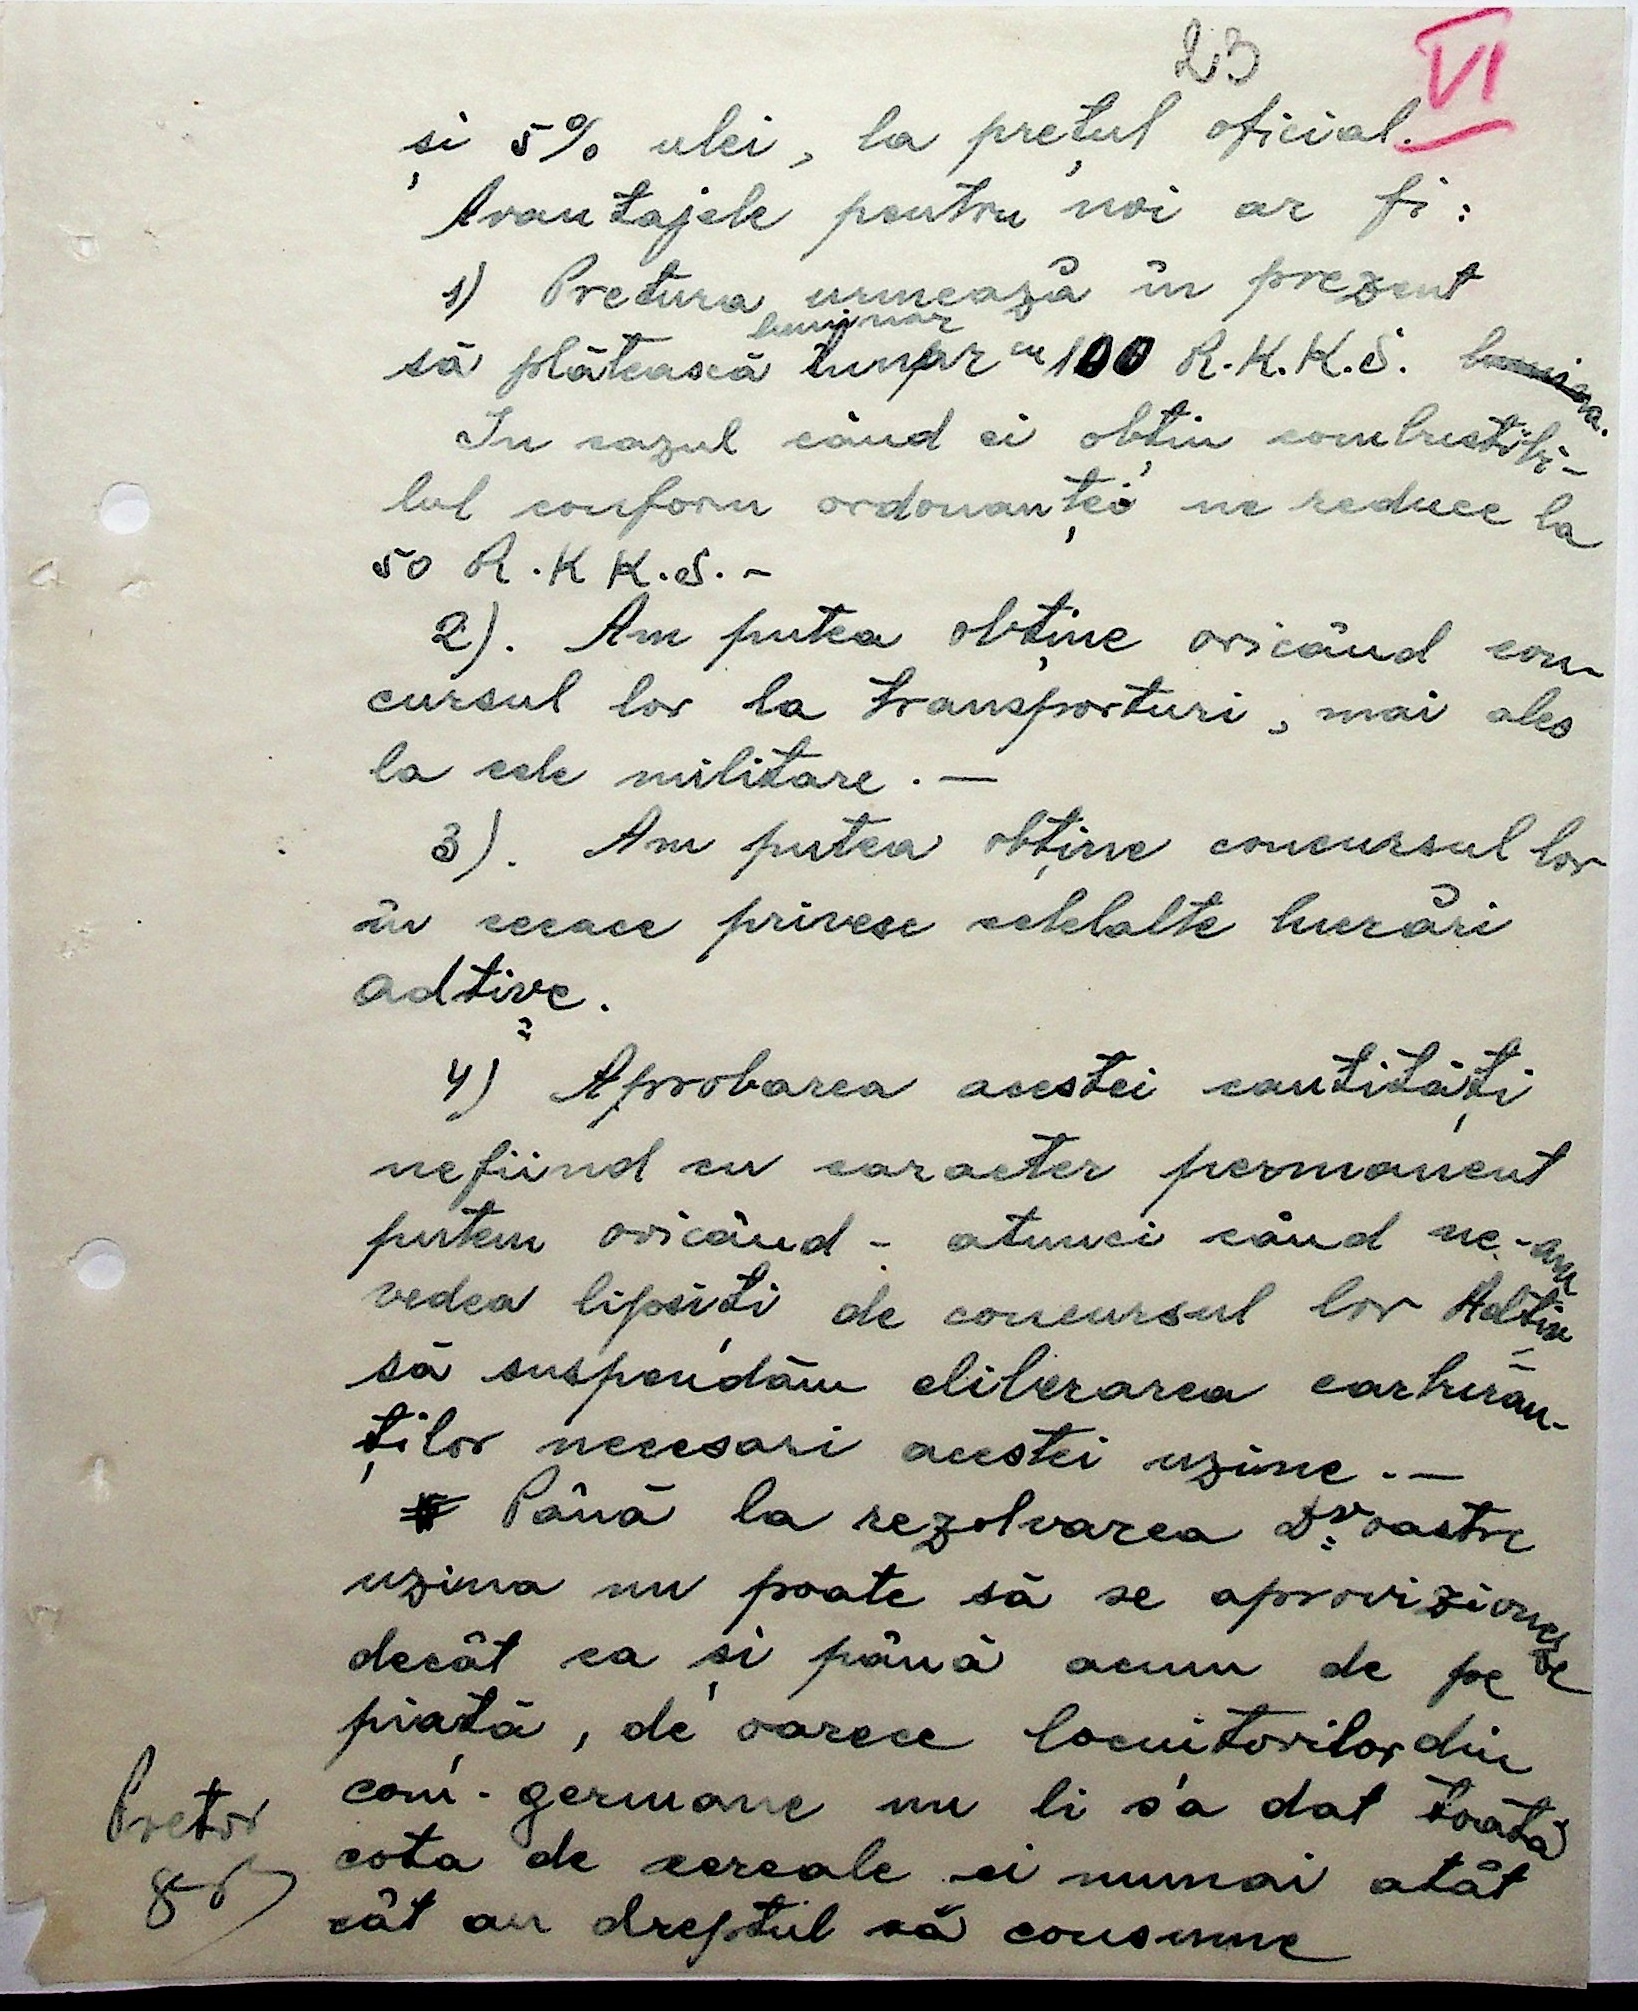 23
VI
și 5% ulei, la prețul oficial.
Avantajele pentru noi ar fi:
1) Pretura urmează în prezent
luminar
să plătească cu 100 R.K.K.S.
In cazul când ei obțin combustibi-
lul conform ordonanței ne reduce la
50 R.K K.S. -
2). Am putea obține oricând con-
cursul lor la transporturi, mai ales
la cele militare. —
3). Am putea obține concursul lor
în ceeace privesc celelalte lucrări
adtive.
4) Aprobarea acestei cantități
nefiind cu caracter permanent
putem oricând - atunci când ne-am
vedea lipsiți de concursul lor Adtiv
să suspendăm eliberarea carburan-
ților necesari acestei uzine. —
Până la rezolvarea Dv oastre
uzina nu poate să se aprovizioneze
decât ca și până acum de pe
piață, de oarece locuitorilor din
com. germane nu li s'a dat toată
cota de cereale ci numai atât
cât au dreptul să consume
Pretor